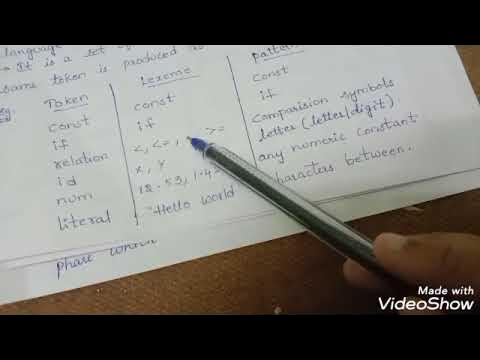 language
→ It is a set of
same token is produced as
Token Lexeme pattern
const const const
if if if
relation <, <=, >= comparision symbols
id x, y letter (letter/digit)
num 12.53, 1.4 any numeric constant
literal "Hello world characters between.
phase
Made with
VideoShow